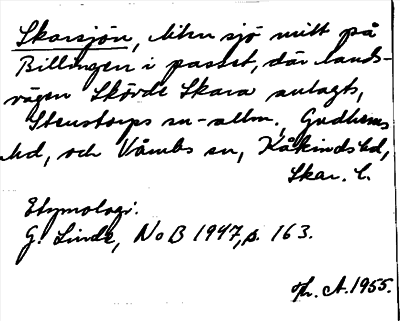 Skarsjön, liten sjö mitt på
Billingen i passet, där lands-
vägen Skövde Skara anlagts,
Stenstorps sn-allm., Gudhems
hd, och Våmbs sn, Kåkinds hd,
Skar. l.
Etymologi:
G. Linde, NoB 1947, s. 163.
A. 1955.